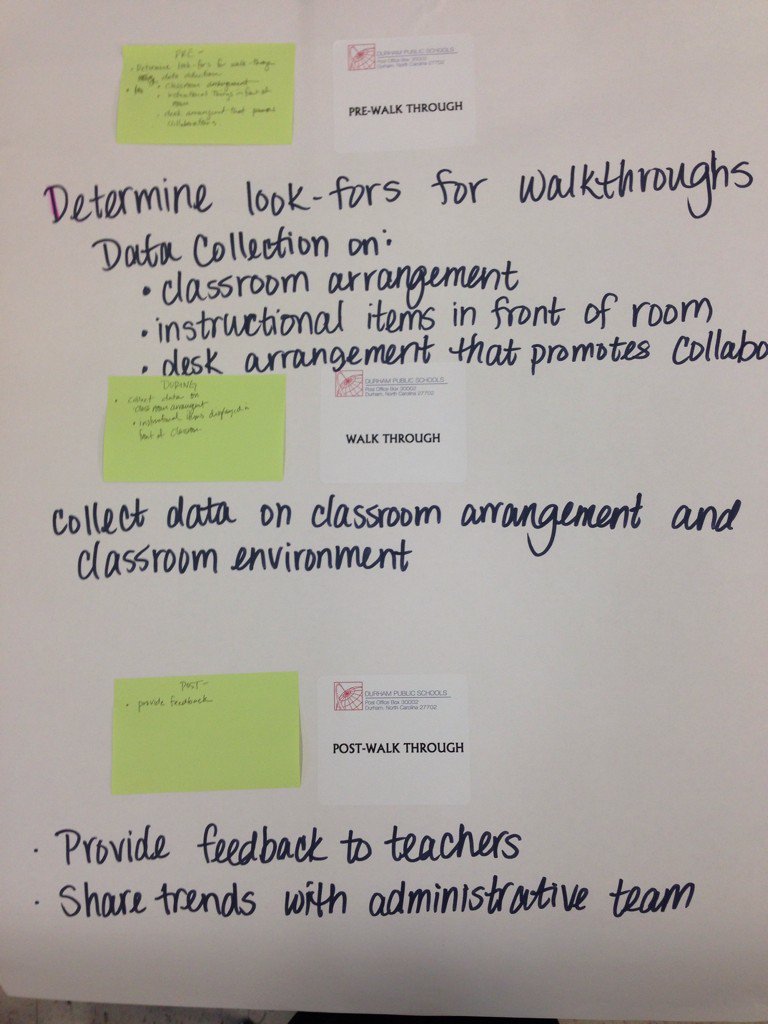 PRE-
• Determine look-fors for walk-throug
data collection
• classroom arrangement
• instructional things in front of
room
• desk arrangment that
collaborations.
DURHAM PUBLIC SCHOOLS
Post Office Box 30002
Durham, North Carolina 27702
PRE-WALK THROUGH
Determine look-fors for walkthroughs
Data Collection on:
• classroom arrangement
• instructional items in front of room
• desk arrangement that promotes collabo
DURING
• collect data on
class room arrangment
• instructional items displayed in
front of classroom
DURHAM PUBLIC SCHOOLS
Post Office Box 30002
Durham, North Carolina 27702
WALK THROUGH
collect data on classroom arrangement and
classroom environment
POST-
• provide feedback
DURHAM PUBLIC SCHOOLS
Post Office Box 30002
Durham, North Carolina 27702
POST-WALK THROUGH
• Provide feedback to teachers
• Share trends with administrative team